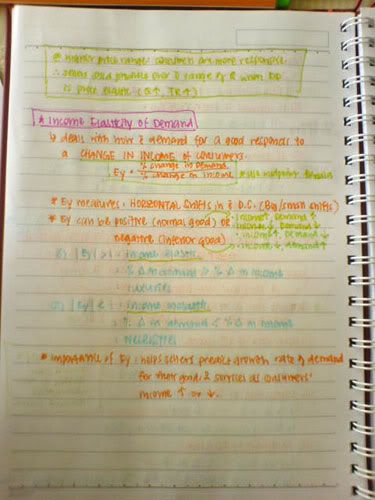 * Higher price range: consumers are more responsive
is price elastic (Q↑, TR↑)
* Income Elasticity of Demand
↳ deals with how demand for a good responds to
a CHANGE IN INCOME of consumers.
Ey = % change in demand
% change in income * use midpoint formula
* Ey measures: HORIZONTAL SHIFTS in D.C. (Big/small shifts)
* Ey can be positive (normal good) or
negative (inferior good)
: income↑, demand↑
: income↓, demand↓
: income↑, demand↓
: income↓, demand↑
|Ey| > 1 = income elastic
: % Δ in demand > % Δ in income
: luxuries
|Ey| < 1 = income inelastic
: % Δ in demand < % Δ in income
: necessities
* importance of Ey: helps sellers predict growth rate of demand
for their goods & services as consumers'
income ↑ or ↓.